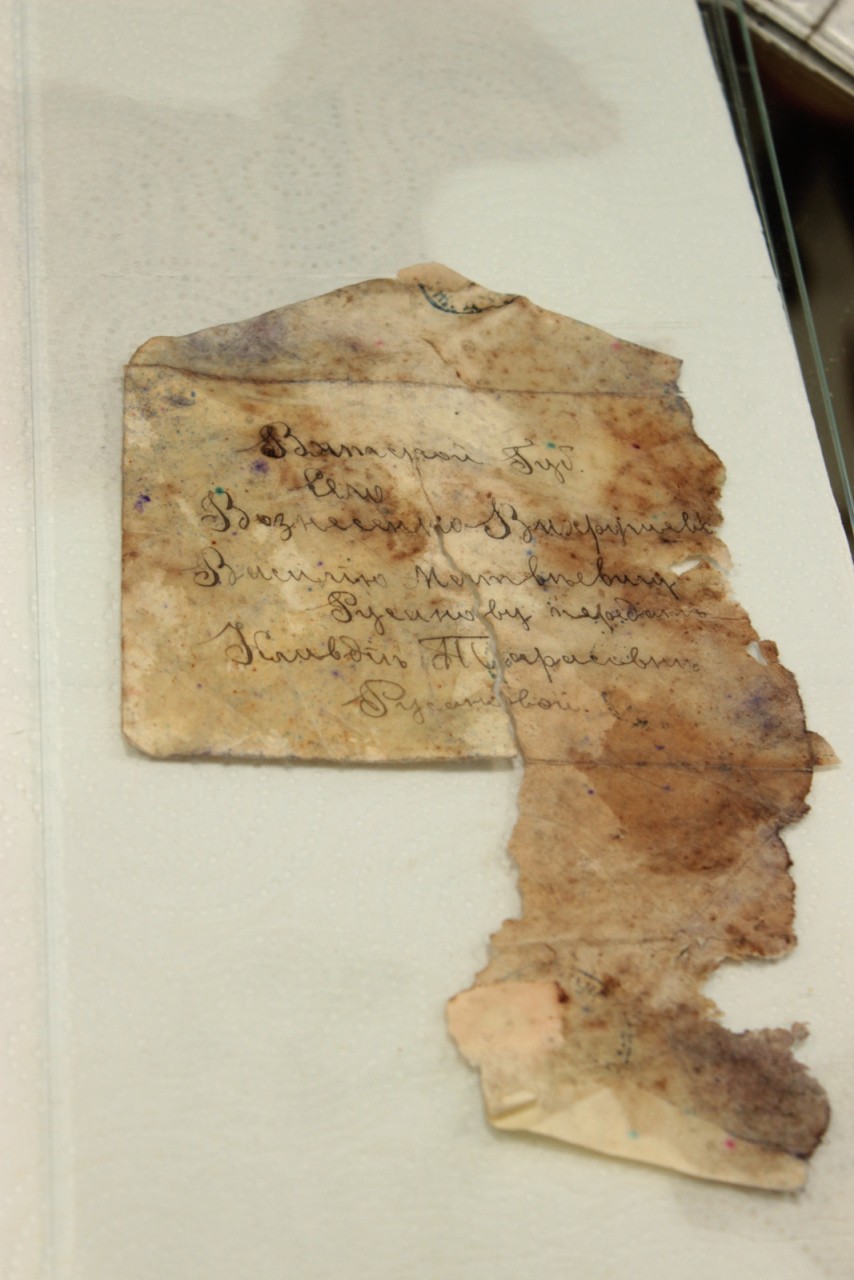 Вятской Губ.
Село
Вознесенско-Вихаревск
Василію Матвѣевичу
Русинову передать
Клавдіи Тарасовнѣ
Русиновой.